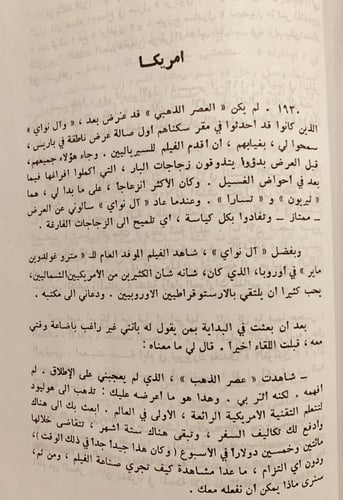 امريكا
١٩٣٠ . لم يكن « العصر الذهبي » قد عُرض بعد ، « وآل نواي »
الذين كانوا قد أحدثوا في مقر سكناهم أول صالة عرض ناطقة في باريس ،
سمحوا لي ، بغيابهم ، أن أقدم الفيلم للسيرياليين . وجاء هؤلاء جميعهم ،
قبل العرض بدؤوا يتذوقون زجاجات البار ، التي اكملوا افراغها فيما
بعد في أحواض الغسيل . وكان الأكثر انزعاجاً ، على ما بدا لي ، هما
« تيريون » و « تسارا » . وعندما عاد « آل نواي » سألوني عن العرض
ــ ممتاز ــ وتفادوا بكل كياسة ، أي تلميح الى الزجاجات الفارغة .
وبفضل « آل نواي » ، شاهد الفيلم الموفد العام للـ « مترو غولدوين
ماير » في أوروبا، الذي كان، شأنه شأن الكثيرين من الأمريكيين الشماليين،
يحب كثيرا أن يلتقي بالارستوقراطيين الاوروبيين . ودعاني الى مكتبه .
بعد أن بعثت في البداية بمن يقول له بأنني غير راغب بإضاعة وقتي
معه ، قبلت اللقاء أخيراً . قال لي ما معناه :
ــ شاهدت « عصر الذهب » ، الذي لم يعجبني على الإطلاق . لم
افهمه . لكنه أثر بي . وهذا هو ما أعرضه عليك : تذهب الى هوليود
لتتعلم التقنية الأمريكية الرائعة ، الأولى في العالم . ابعث بك الى هناك
وادفع لك تكاليف السفر ، وتبقى هناك ستة اشهر ، تتقاضى خلالها
مائتين وخمسين دولاراً في الأسبوع ( وكان هذا جيداً جداً في ذلك الوقت ) ،
ودون أي التزام ، ما عدا مشاهدة كيف تجري صناعة الفيلم ، ومن ثم،
سنرى ماذا يمكن أن نفعله معك .